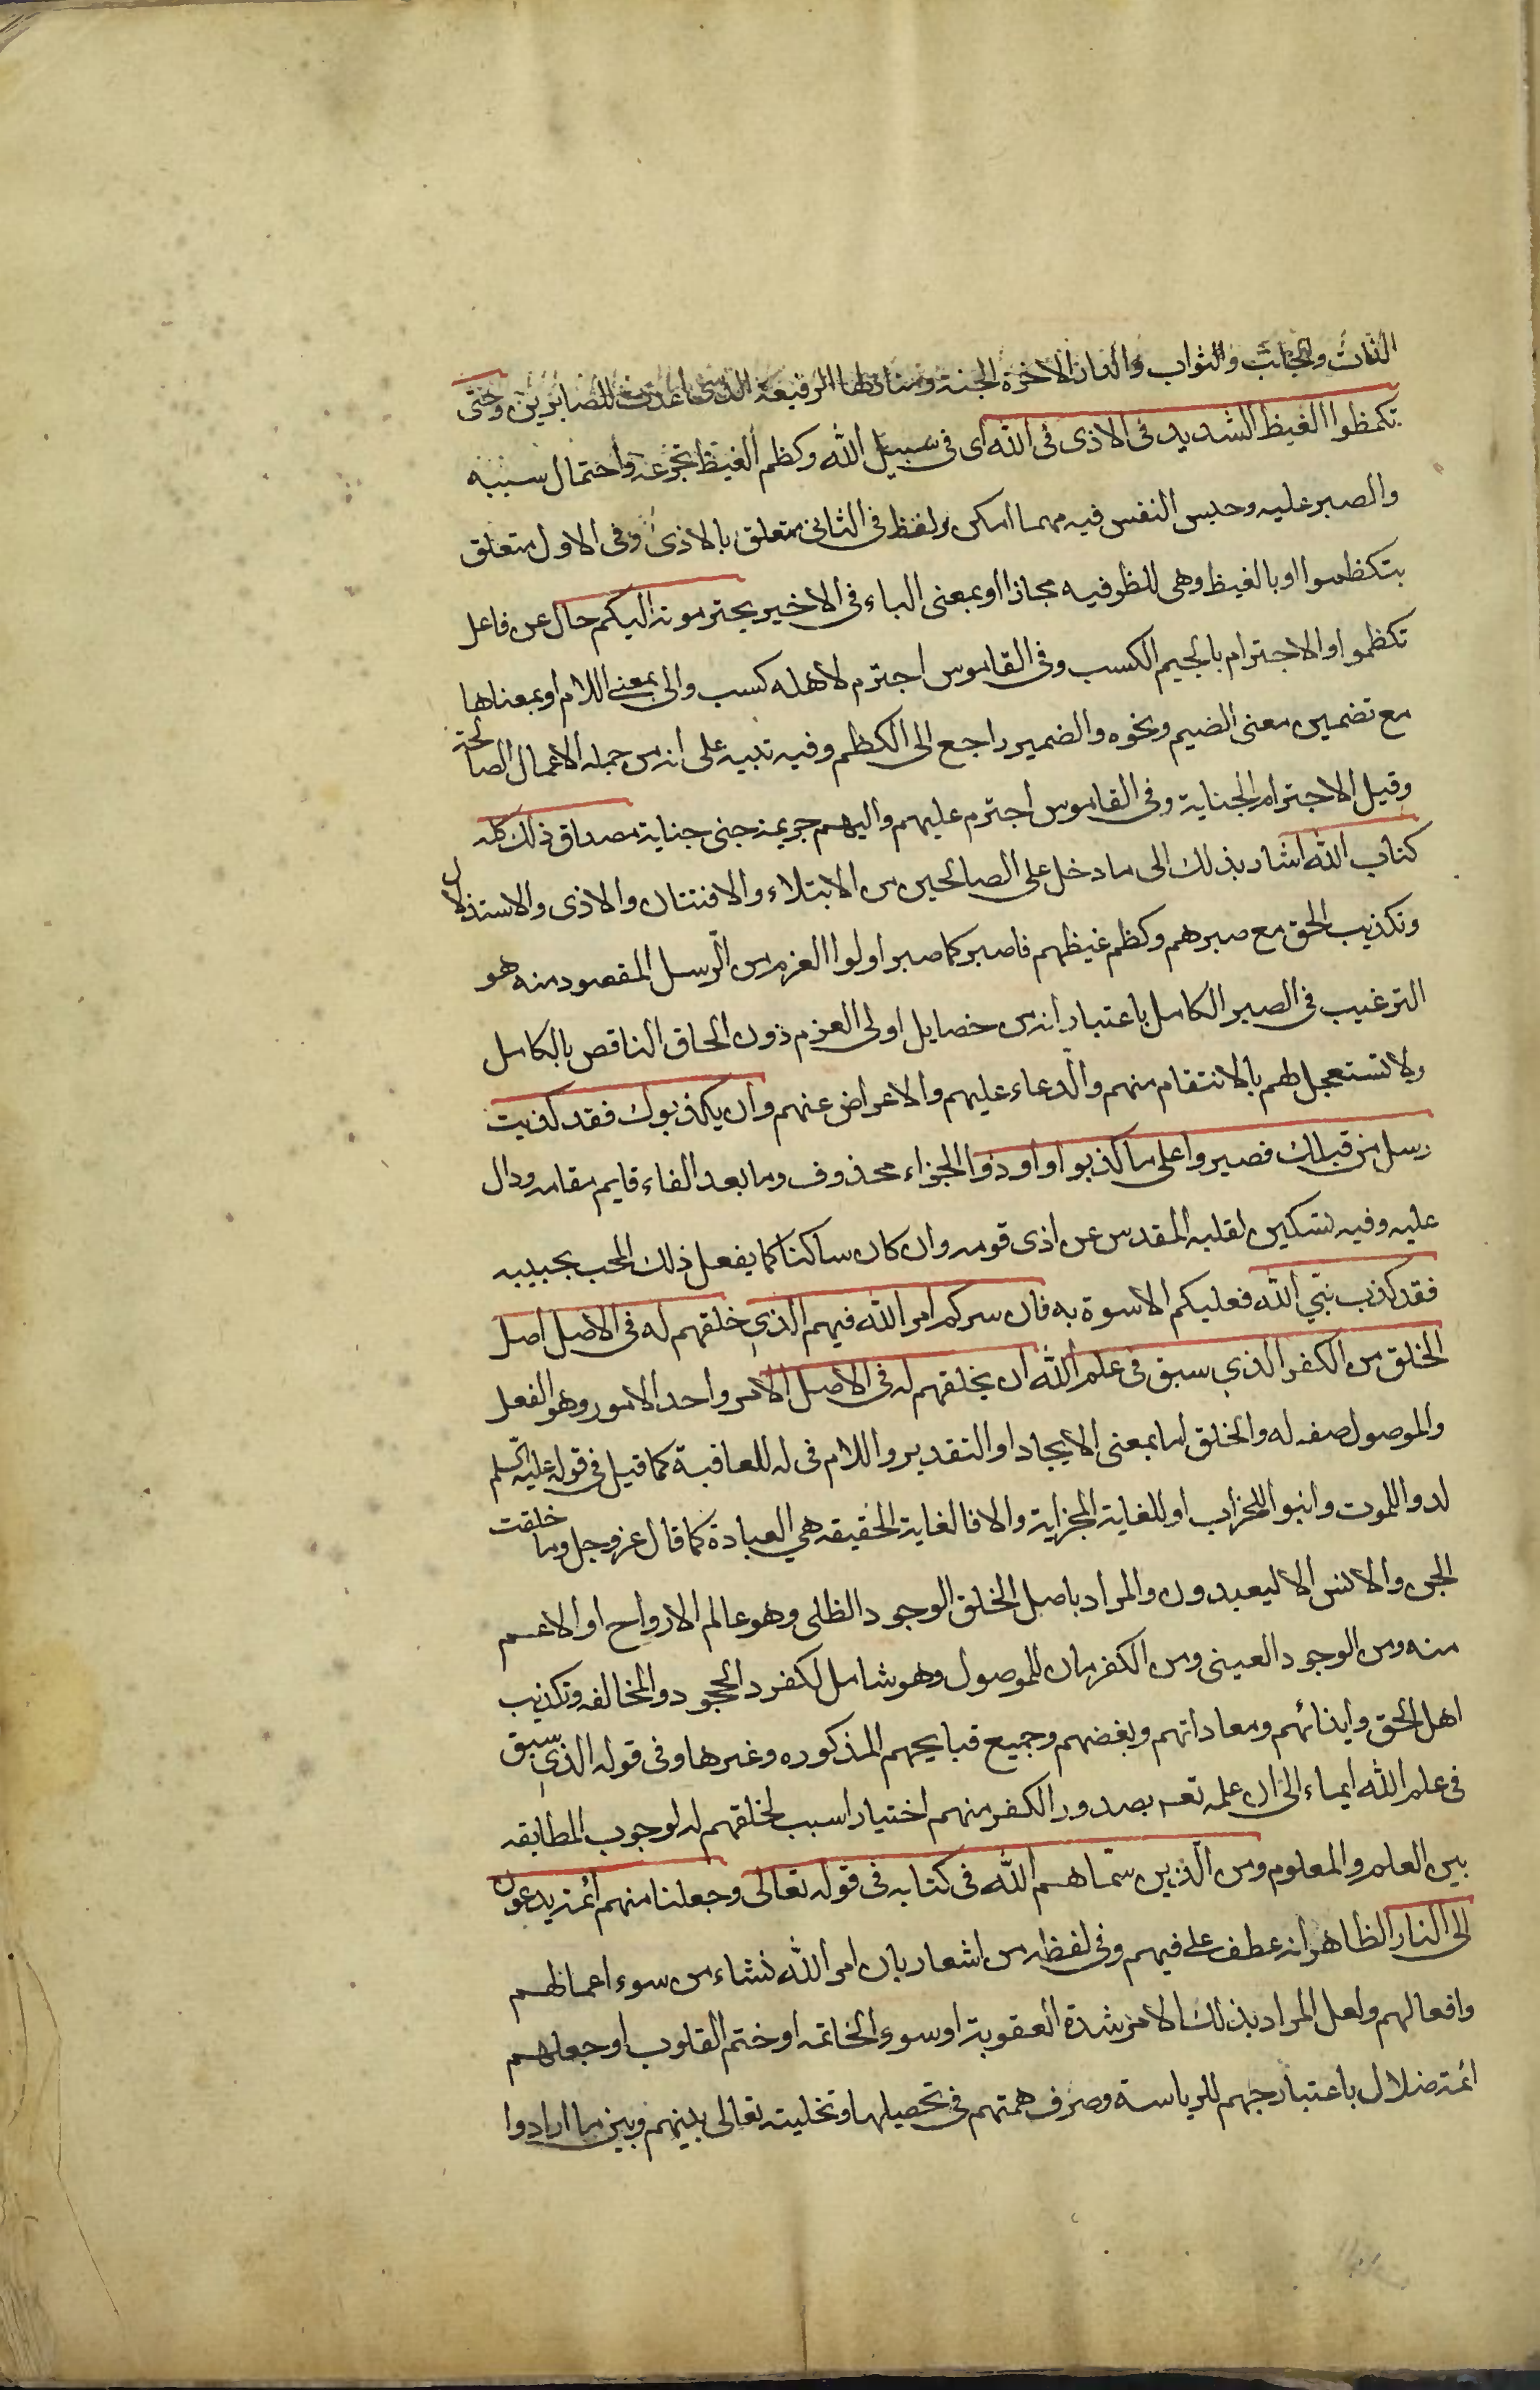 الثاث والجالب والثواب والدار الاخرة الجنة ومنازلها الرفيعة التى اعدت للصابرين وحتى
تكمظوا الغيظ الشديد فى الاذى فى الله اى فى سبيل الله وكظم الغيظ تجرعه واحتمال سببه
والصبر عليه وحبس النفس فيه مهما امكن ولفظ فى الثانى متعلق بالاذى وفى الاول متعلق
بتكظموا او بالغيظ وهى للظرفيه مجازا او بمعنى الباء فى الاخير يجترمونه اليكم حال عن فاعل
تكظموا والاجترام بالجيم الكسب وفى القاموس اجترم لاهله كسب والى بمعنى اللام او بمعناها
مع تضمين معنى الضيم ونحوه والضمير راجع الى الكظم وفيه تنبيه على انه من جمله الاعمال الصالحة
وقيل الاجترام الجناية وفى القاموس اجترم عليهم واليهم جريمة جنى جناية مصداق ذلك كله
كتاب الله اشار بذلك الى ما دخل على الصالحين من الابتلاء والافتتان والاذى والاستذلال
وتكذيب الحق مع صبرهم وكظم غيظهم فاصبر كما صبر اولوا العزم من الرسل المقصود منه هو
الترغيب فى الصبر الكامل باعتبار انه من خصايل اولى العزم دون الحاق الناقص بالكامل
ولا تستعجل لهم بالانتقام منهم والدعاء عليهم والاعراض عنهم وان يكذبوك فقد كذبت
رسل من قبلك فصبروا على ما كذبوا واوذوا الجزاء محذوف وما بعد الفاء قايم مقامه ودال
عليه وفيه تسكين لقلبه المقدس عن اذى قومه وان كان ساكنا كما يفعل ذلك المحب بحبيبه
فقد كذب نبي الله فعليكم الاسوة به فان سركم امر الله فيهم الذي خلقهم له فى الاصل اصل
الخلق من الكفر الذي سبق فى علم الله ان يخلقهم له فى الاصل الامر واحد الامور وهو الفعل
والموصول صفه له والخلق اما بمعنى الايجاد او التقدير واللام فى له للعاقبة كما قيل فى قوله عليه السلم
لدوا للموت وابنوا للخراب او للغاية المجزاية والا فالغاية الحقيقه هي العبادة كما قال عز وجل وما خلقت
الجن والانس الا ليعبدون والمراد باصل الخلق الوجود الظلى وهو عالم الارواح او الاعم
منه ومن الوجود العينى ومن الكفر بيان للموصول وهو شامل لكفرد الجحود والمخالفه وتكذيب
اهل الحق وايذائهم ومعاداتهم وبغضهم وجميع قبايحهم المذكوره وغيرها وفى قوله الذي سبق
فى علم الله ايماء الى ان علمه تعـ بصدور الكفر منهم اختيارا سبب لخلقهم له لوجوب المطابقه
بين العلم والمعلوم ومن الذين سماهم الله فى كتابه فى قوله تعالى وجعلنا منهم ائمة يدعون
الى النار الظاهر انه عطف على فيهم وفى لفظه من اشعار بان امر الله نشاء من سوء اعمالهم
وافعالهم ولعل المراد بذلك الامر شدة العقوبة او سوء الخاتمه او ختم القلوب او جعلهم
ائمة ضلال باعتبار حبهم للرياسة وصرف همتهم فى تحصيلها وتخليته تعالى بينهم وبين ما ارادوا